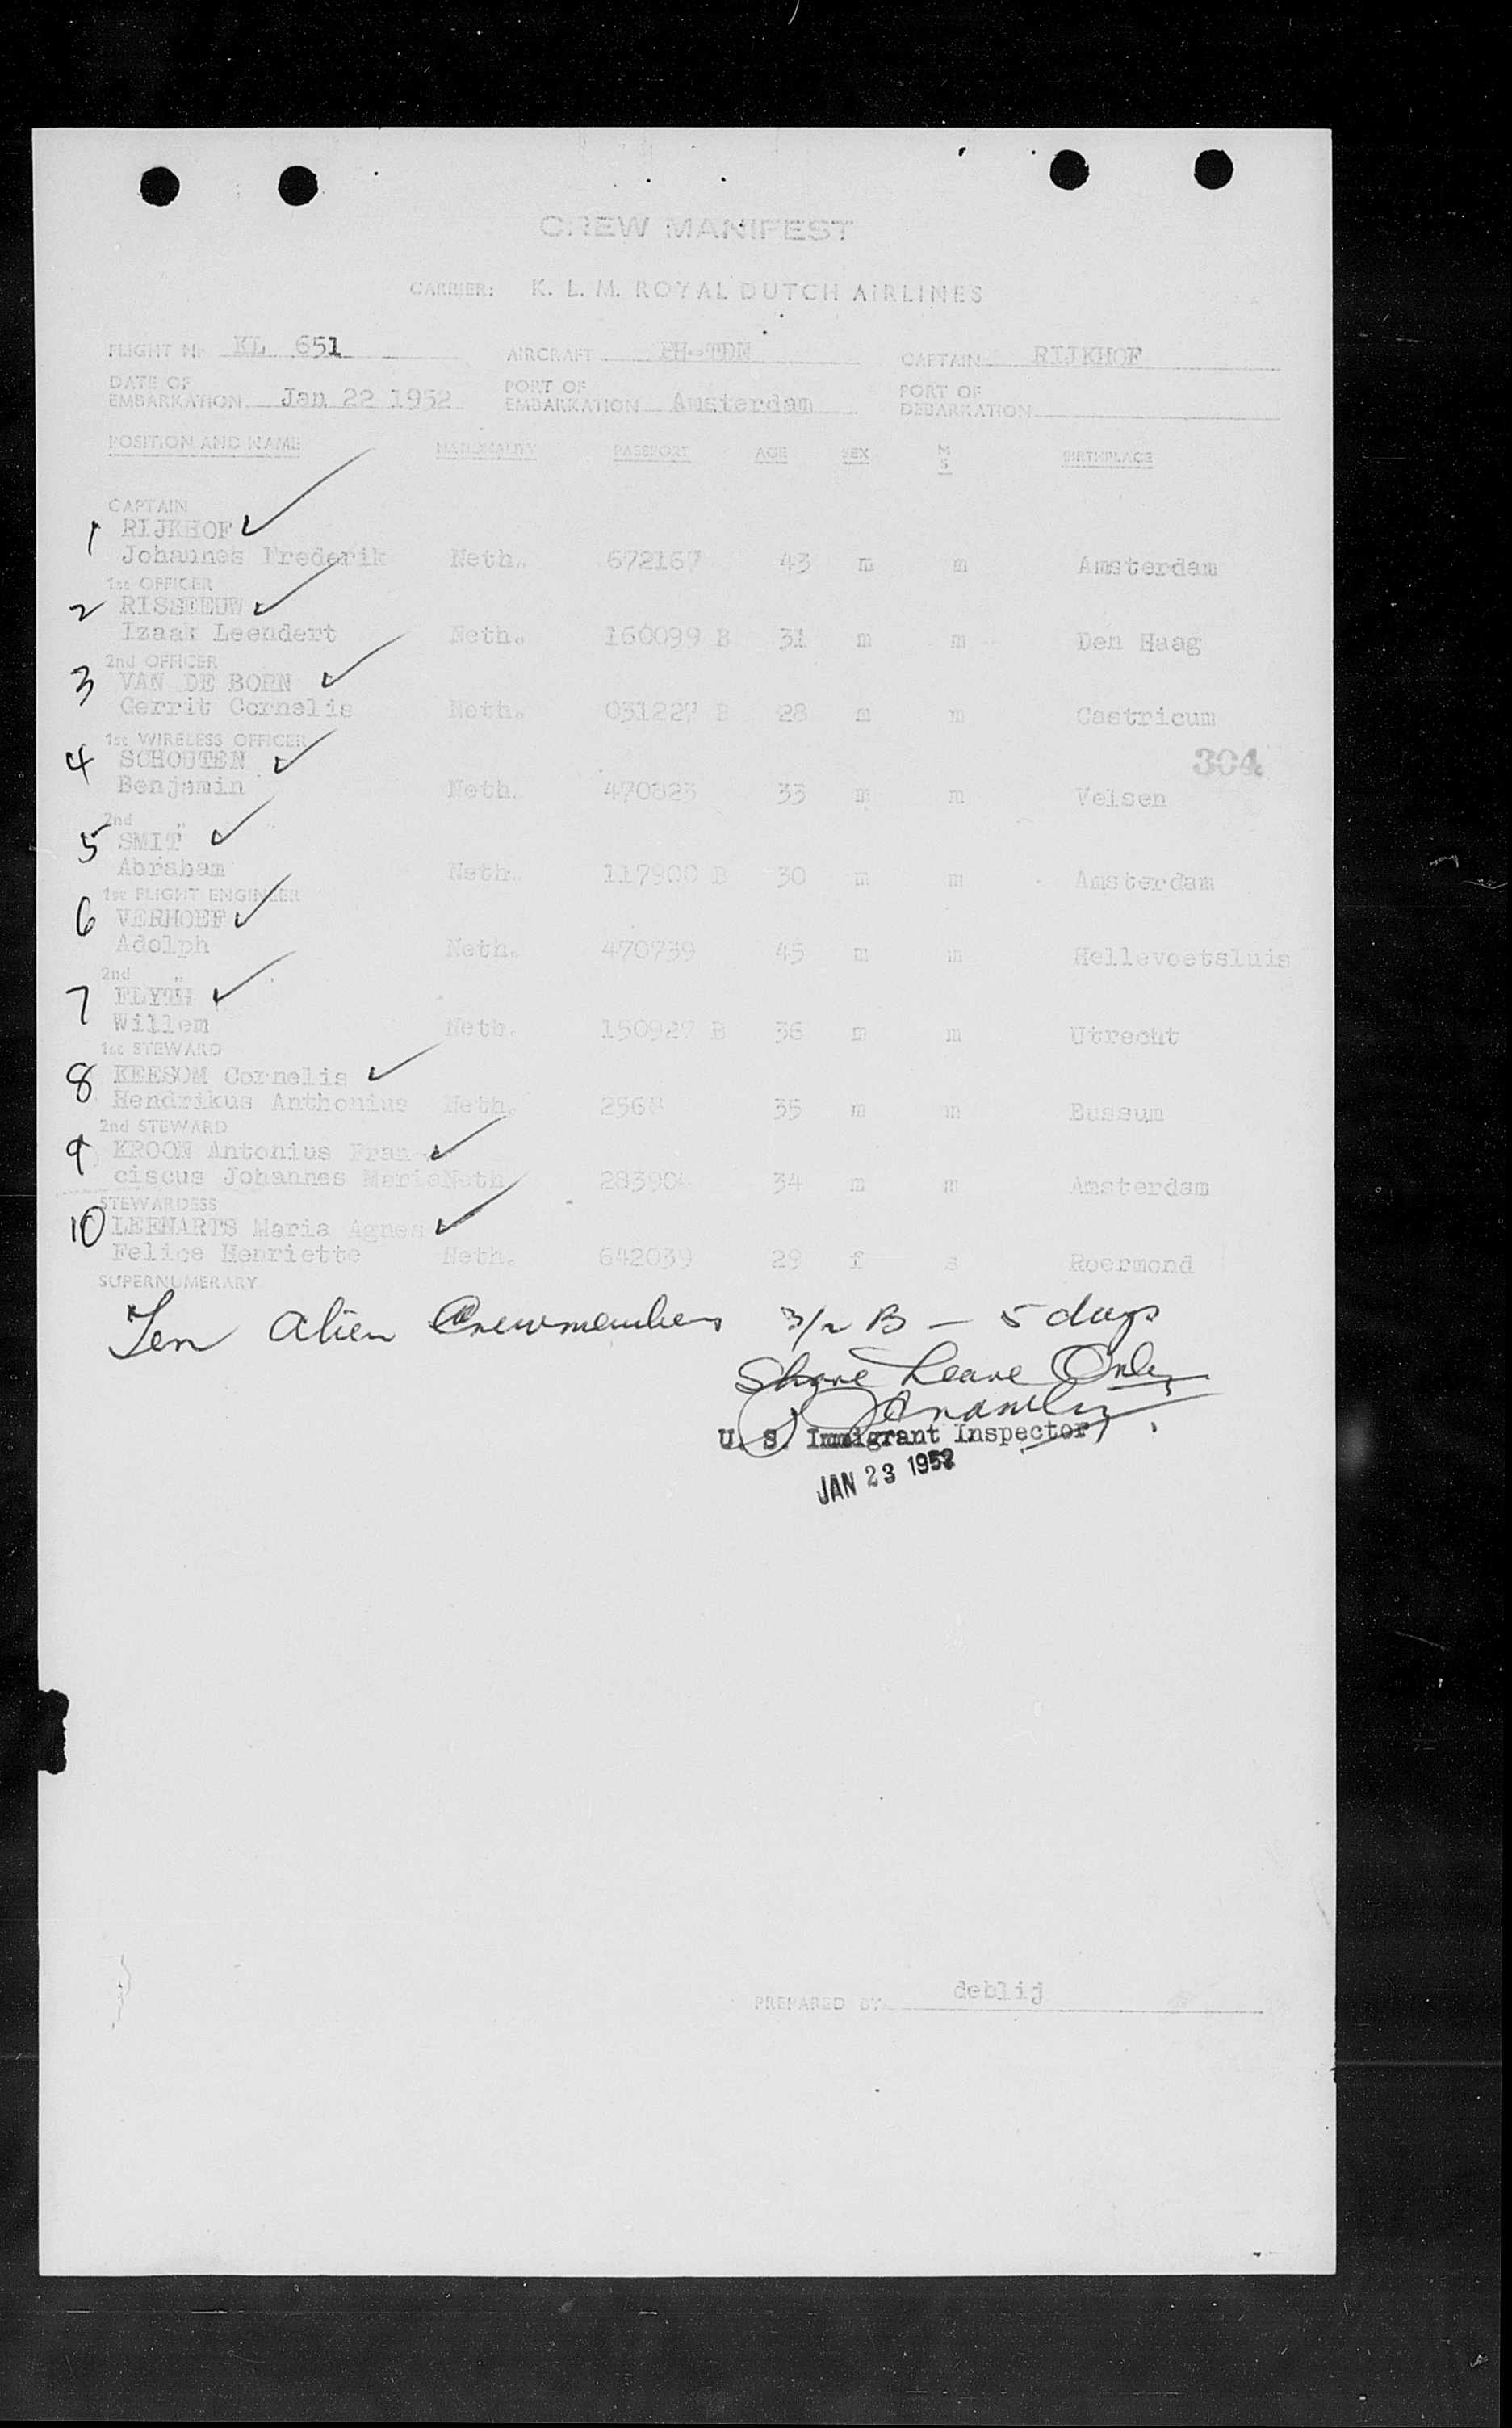 CREW MANIFEST
CARRIER: K. L. M. ROYAL DUTCH AIRLINES
FLIGHT Nr KL 651 AIRCRAFT PH-TDN CAPTAIN RIJKHOF
DATE OF EMBARKATION Jan 22 1952 PORT OF EMBARKATION Amsterdam PORT OF DEBARKATION
POSITION AND NAME NATIONALITY PASSPORT AGE SEX M S BIRTHPLACE
CAPTAIN
1 RIJKHOF
Johannes Frederik Neth. 672167 43 m m Amsterdam
1st OFFICER
2 RISSEEUW
Izaak Leendert Neth. 160099 B 31 m m Den Haag
2nd OFFICER
3 VAN DE BORN
Gerrit Cornelis Neth. 031227 B 28 m m Castricum
1st WIRELESS OFFICER
4 SCHOUTEN 304
Benjamin Neth. 470823 33 m m Velsen
2nd "
5 SMIT
Abraham Neth. 117900 B 30 m m Amsterdam
1st FLIGHT ENGINEER
6 VERHOEF
Adolph Neth. 470739 45 m m Hellevoetsluis
2nd "
7
Willem Neth. 150927 B 36 m m Utrecht
1st STEWARD
8 KEESOM Cornelis
Hendrikus Anthonius Neth. 35 m m Bussum
2nd STEWARD
9 KROON Antonius Fran-
ciscus Johannes Maria Neth. 34 m m Amsterdam
STEWARDESS
10 LEENARTS Maria Agnes
Felice Henriette Neth. 642039 29 f s Roermond
SUPERNUMERARY
Ten Alien Crewmembers 3/2 B - 5 days
Shore Leave Only
U. S. Immigrant Inspector
JAN 23 1952
PREPARED BY deblij